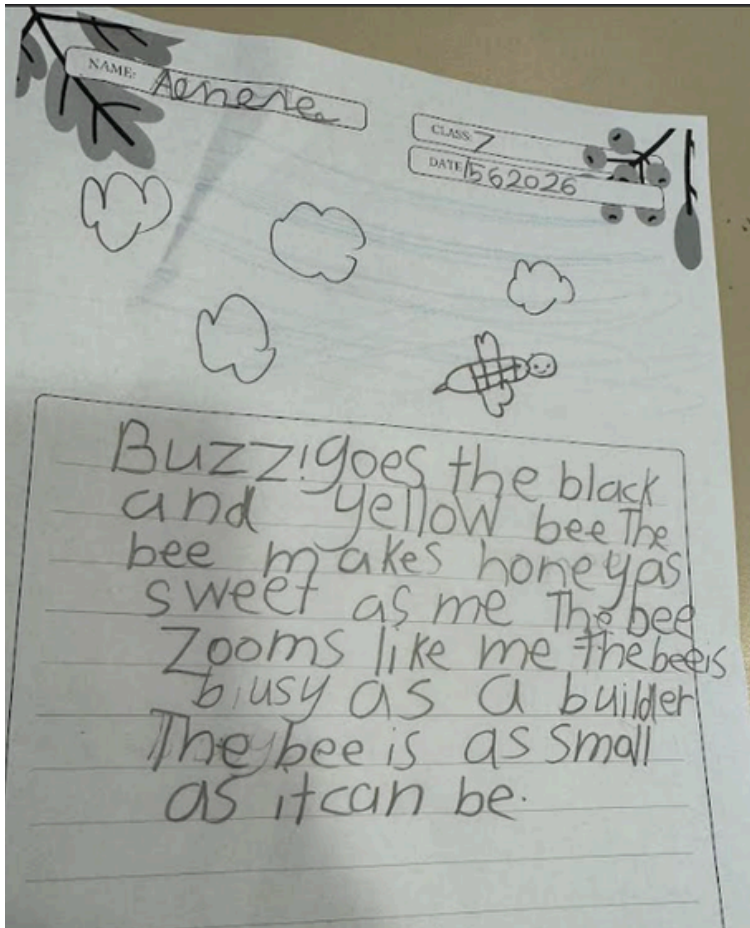 NAME: Aenene
CLASS: 7
DATE 1562026
Buzz! goes the black
and yellow bee The
bee makes honey as
sweet as me The bee
Zooms like me The bee is
biusy as a builder
The bee is as small
as it can be.